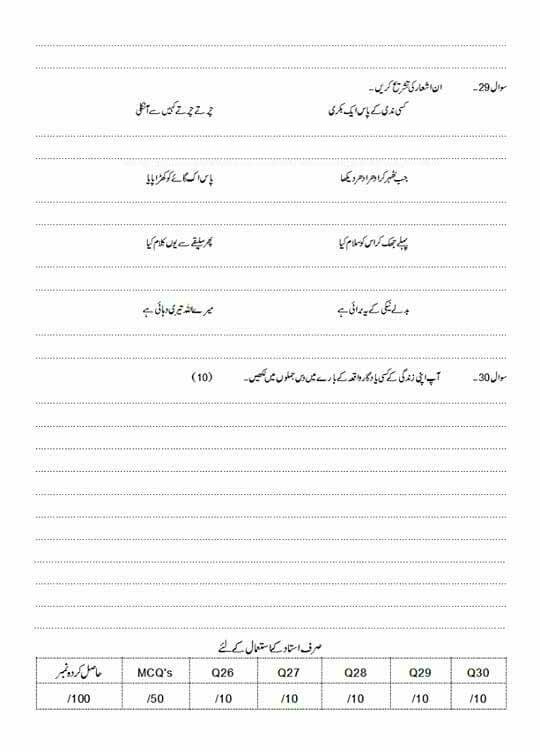 سوال 29۔ ان اشعار کی تشریح کریں۔
کسی ندی کے پاس ایک بکری چرتے چرتے کہیں سے آنکلی
جب ٹھہر کر ادھر ادھر دیکھا پاس اک گائے کو کھڑا پایا
پہلے جھک کر اس کو سلام کیا پھر سلیقے سے یوں کلام کیا
بدلے نیکی کے یہ ندائی ہے میرے اللہ تیری دہائی ہے
سوال 30۔ آپ اپنی زندگی کے کسی یادگار واقعہ کے بارے میں دس جملوں میں لکھیں۔ (10)
صرف استاد کے استعمال کے لئے
حاصل کردہ نمبر MCQ's Q26 Q27 Q28 Q29 Q30
/100 /50 /10 /10 /10 /10 /10